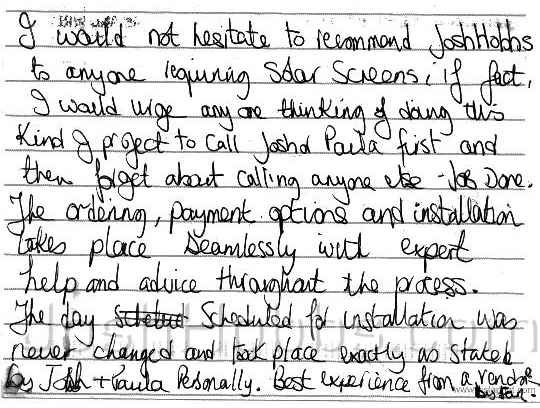 I would not hesitate to recommend Josh Hobbs
to anyone requiring Solar Screens, if fact,
I would urge anyone thinking of doing this
kind of project to call Josh or Paula first and
then forget about calling anyone else - Job Done.
The ordering, payment options and installation
takes place seamlessly with expert
help and advice throughout the process.
The day scheduled for installation was
never changed and took place exactly as stated
by Josh + Paula Personally. Best experience from a vendor
by far.